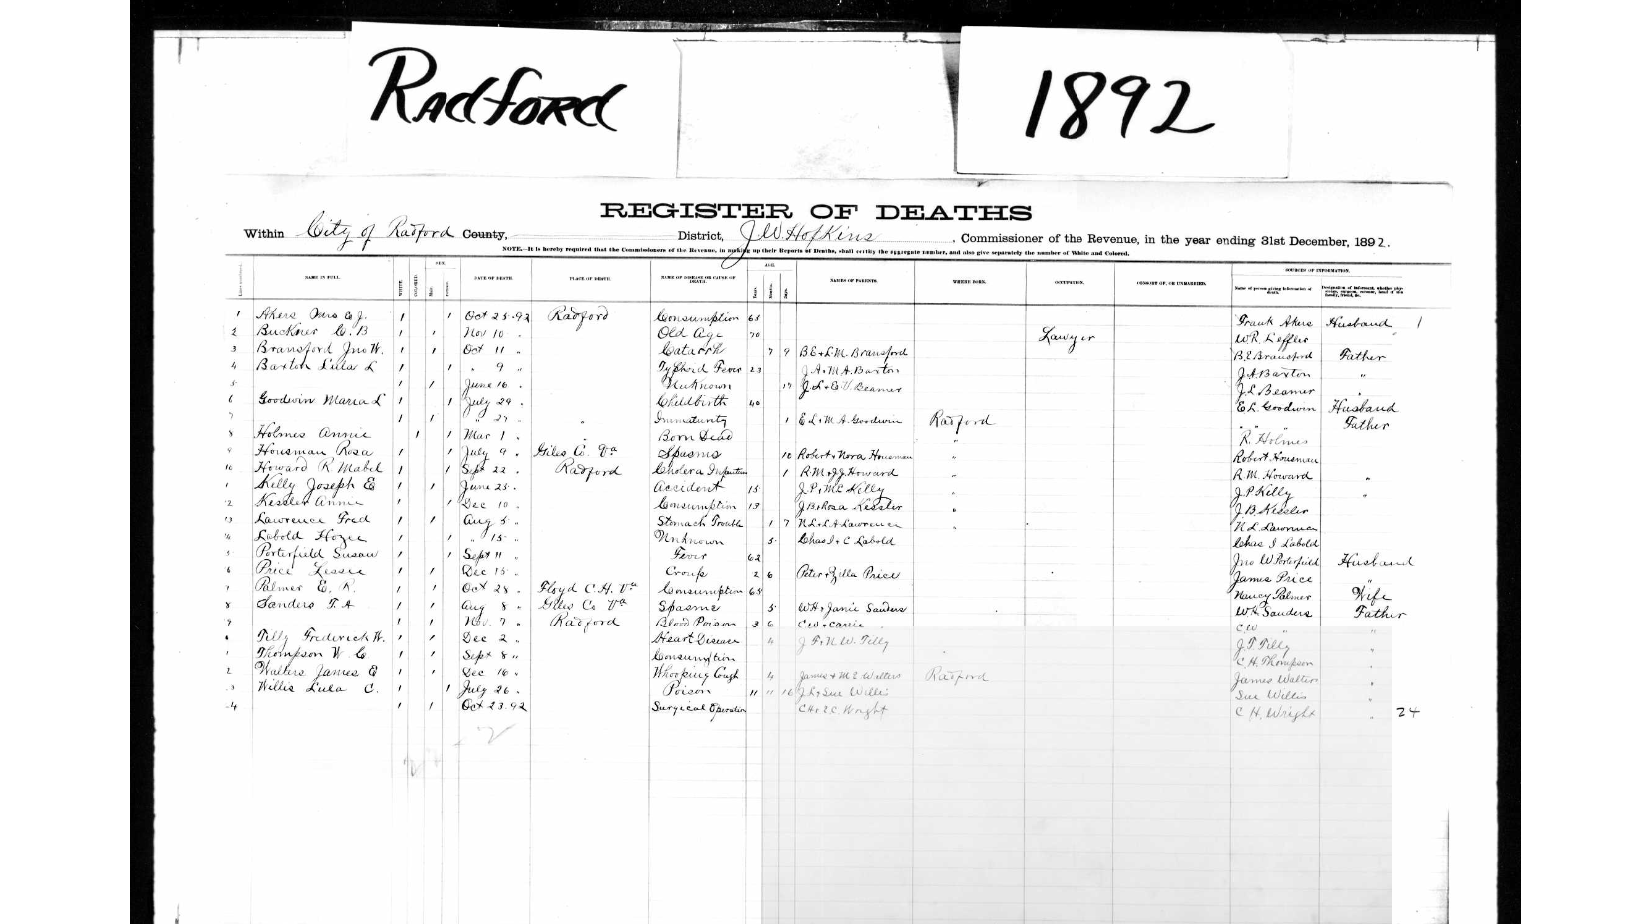 RADFORD
1892
REGISTER OF DEATHS
Within City of Radford County, District, J W Hopkins, Commissioner of the Revenue, in the year ending 31st December, 1892.
NOTE.—It is hereby required that the Commissioners of the Revenue, in making up their Reports of Deaths, shall certify the aggregate number, and also give separately the number of White and Colored.
SEX. AGE. SOURCES OF INFORMATION.
NAME IN FULL. WHITE. COLORED. DATE OF DEATH. PLACE OF DEATH. NAME OF DISEASE OR CAUSE OF DEATH. Years. Months. Days. NAMES OF PARENTS. WHERE BORN. OCCUPATION. CONSORT OF, OR UNMARRIED. Name of person giving information of death.
1 Akers Mrs E J. 1 1 Oct 25-92 Radford Consumption 65 Frank Akers Husband 1
2 Buckner C. B 1 1 Nov 10 " Old Age 70 Lawyer W.R. Leffler
3 Bransford Jno W. 1 1 Oct 11 " Catarrh 7 9 B.E & L.M. Bransford B.E Bransford Father
4 Baxton Lula L 1 1 " 9 " Typhoid Fever 23 J.A & M.A. Baxton J.A Baxton "
5 1 1 June 16 " Unknown 17 J.L & E.V. Beamer J.L Beamer "
6 Goodwin Maria L 1 1 July 29 " Childbirth 40 E L Goodwin Husband
7 1 1 " 27 " " Immaturity 1 E L & M A. Goodwin Radford " " Father
8 Holmes Annie 1 1 Mar 1 " Born Dead " R. Holmes
9 Housman Rosa 1 1 July 9 " Giles Co. Va Spasms 10 Robert & Nora Housman " Robert Housman
10 Howard R Mabel 1 1 Sept 22 " Radford Cholera 1 R M & J J Howard " R M. Howard "
1 Kelly Joseph E 1 1 June 25 " Accident 15 J.P & M E Kelly " J.P Kelly "
2 Kessler Annie 1 1 Dec 10 " Consumption 19 J B & Rosa Kessler " J.B Kessler
13 Lawrence Fred 1 1 Aug 5 " Stomach Trouble 1 7 N L & L A Lawrence " N L. Lawrence
14 Labold 1 1 " 15 " Unknown 5 Chas I & C Labold Chas I Labold
5 Porterfield Susan 1 1 Sept 11 " Fever 62 Jno W Porterfield Husband
6 Price 1 1 Dec 15 " Croup 2 6 Peter & Zilla Price James Price "
7 Palmer E. R. 1 1 Oct 28 " Floyd C.H. Va Consumption 65 Nancy Palmer Wife
8 Sanders T. A 1 1 Aug 8 " Giles Co Va Spasms 5 W H & Janie Sanders W H Sanders Father
9 1 1 Nov. 7 " Radford Blood Poison 3 6 C W & Carrie " C W " "
0 Tilly Frederick W. 1 1 Dec 2 " Heart Disease 4 J T & N W. Tilly J.T Tilly "
1 Thompson W C 1 1 Sept 8 " Consumption C H. Thompson "
2 Walters James E 1 1 Dec 16 " Whooping Cough 4 James & M E Walters Radford James Walters "
3 Willis Lula C. 1 1 July 26 " Poison 11 11 16 J L & Sue Willis Sue Willis "
24 1 1 Oct 23-92 Surgical Operation C H & E C. Wright C H. Wright " 24